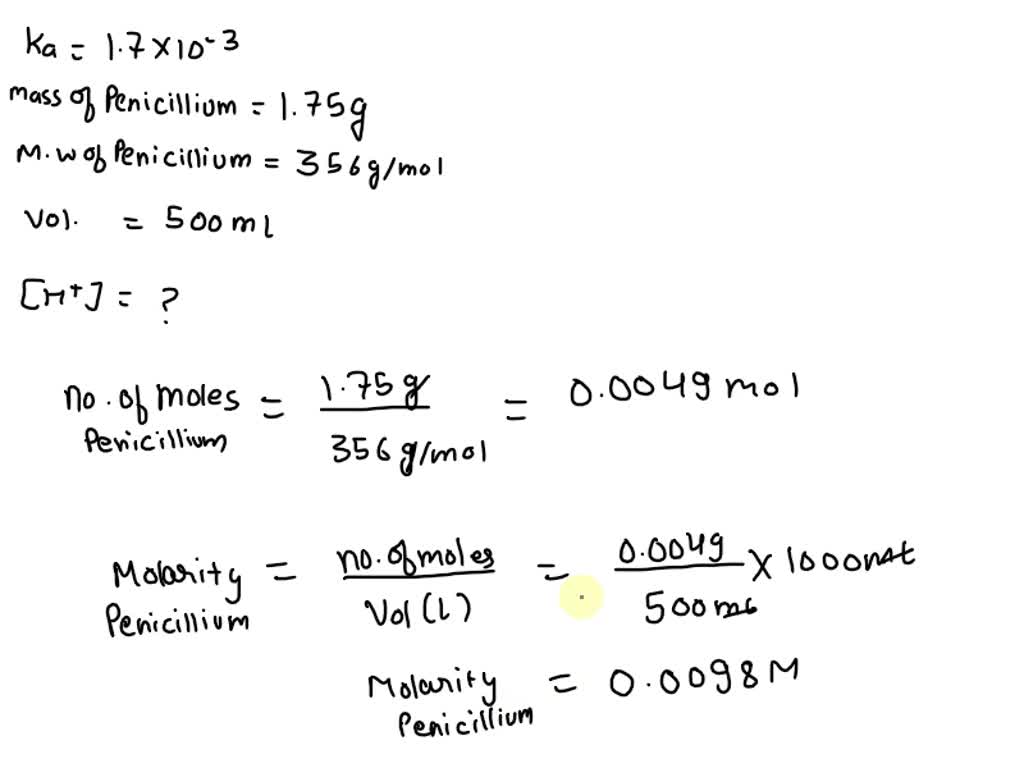 Ka = 1.7×10-3
mass of Penicillium = 1.75g
M.w of Penicillium = 356g/mol
Vol. = 500ml
[H+] = ?
no. of moles Penicillium = 1.75g / 356 g/mol = 0.0049 mol
Molarity Penicillium = no. of moles / Vol (L) = 0.0049 / 500 × 1000
Molarity Penicillium = 0.0098 M